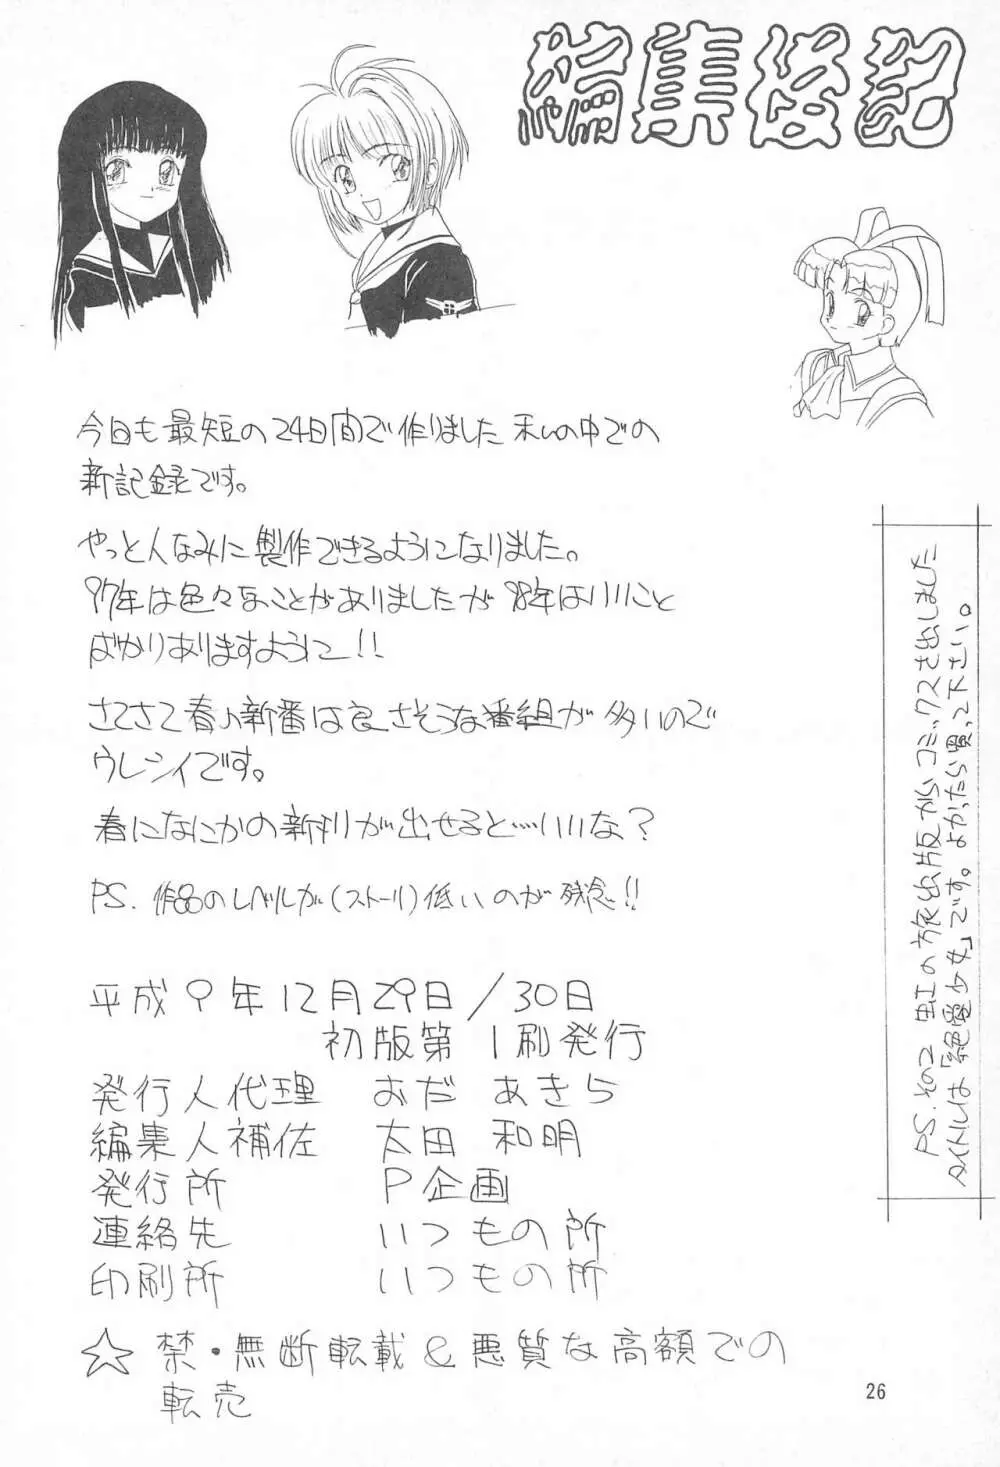 編集後記
今日も最短の24日間で作りました 私の中での
新記録です。
やっと人なみに製作できるようになりました。
97年は色々なことがありましたが 98年はいいこと
ばかりありますように!!
さてさて春の新番は良さそうな番組が多いので
ウレシイです。
春になにかの新刊が出せると…いいな?
PS. 作品のレベルが(ストーリー)低いのが残念!!
平成9年12月29日/30日
初版第1刷発行
発行人代理 おだ あきら
編集人補佐 太田 和明
発行所 P企画
連絡先 いつもの所
印刷所 いつもの所
☆ 禁・無断転載&悪質な高額での
転売
PS. その2 虹の旅出版からコミックスを出しました
タイトルは「絶電少女」です。よかったら買って下さい。
26